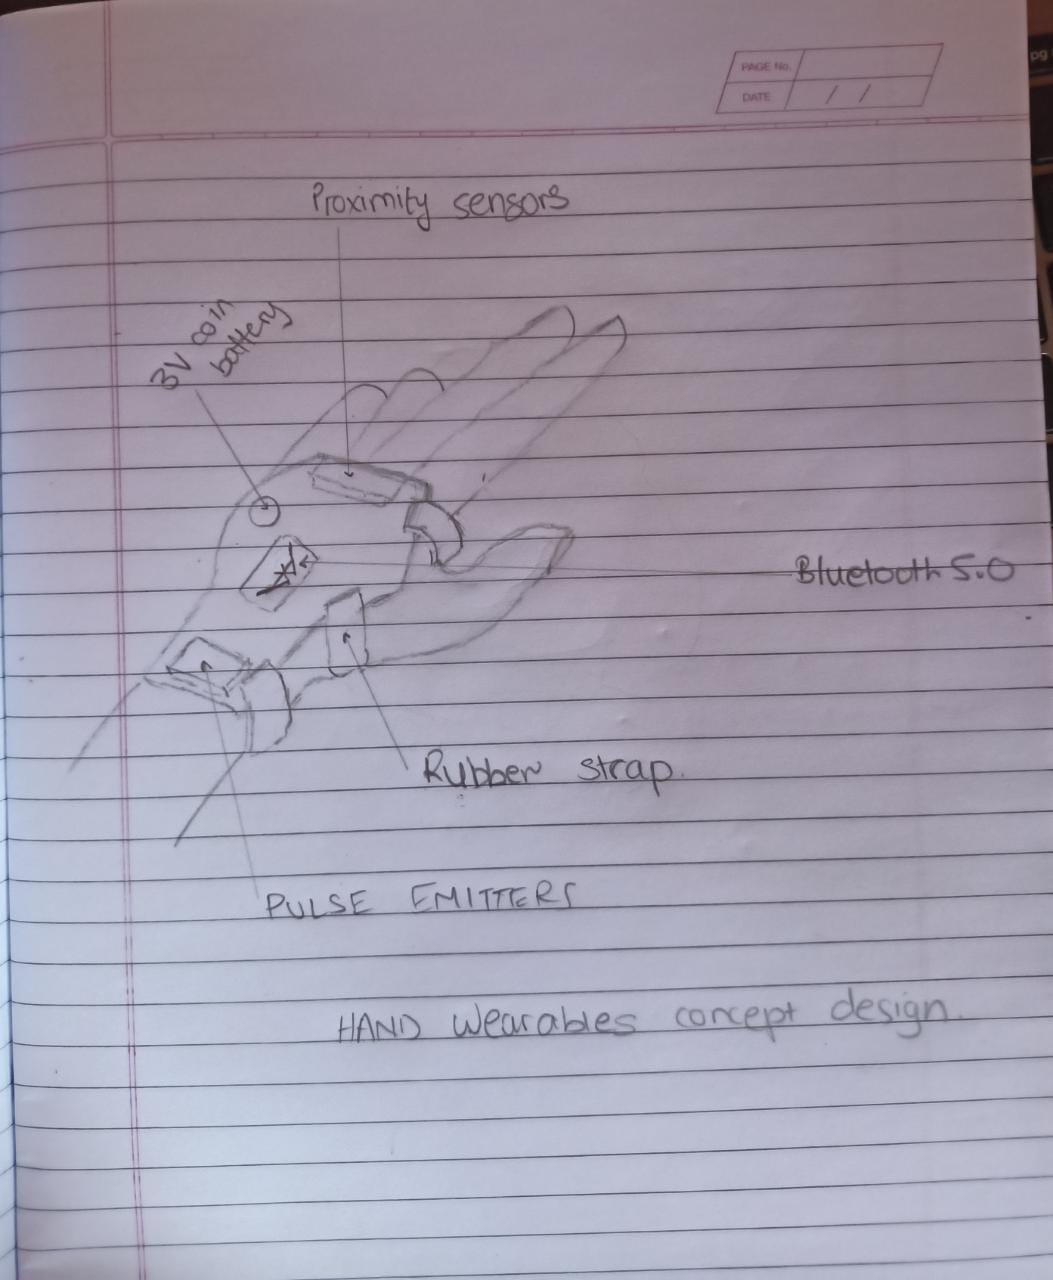 PAGE No.
DATE / /
Proximity sensors
3V coin
battery
Bluetooth 5.0
Rubber strap.
PULSE EMITTERS
HAND wearables concept design.
pg